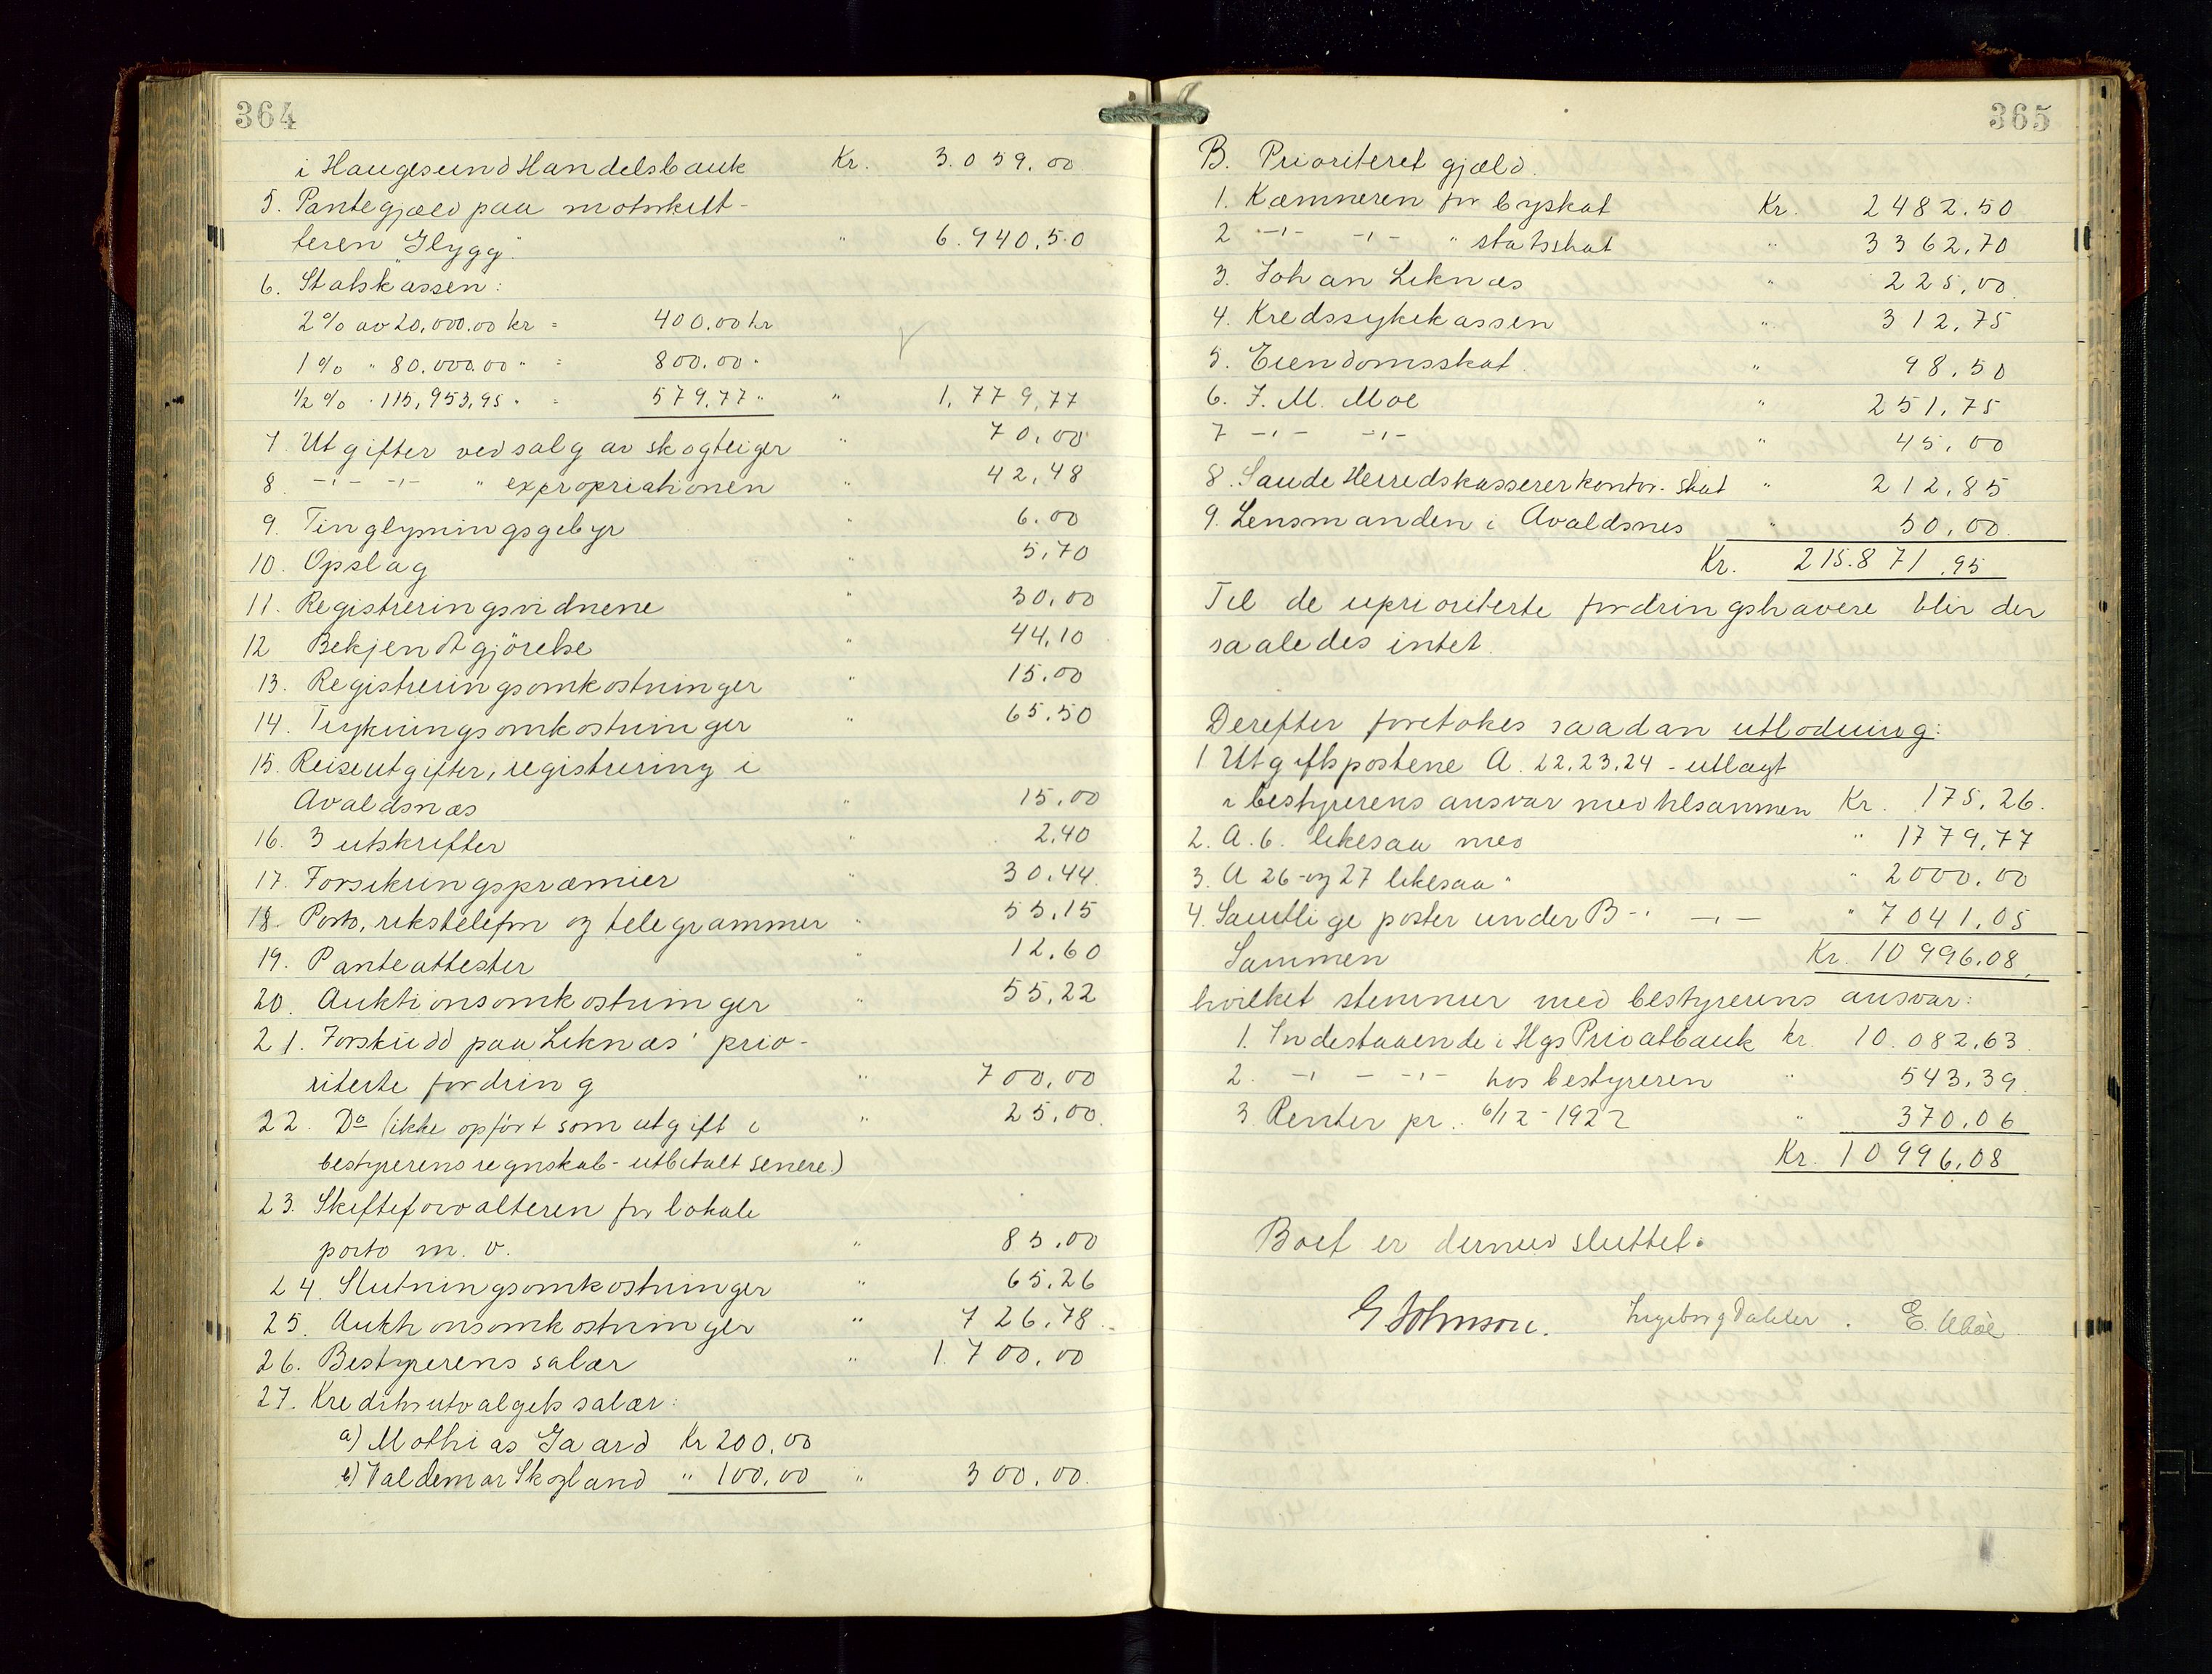 364
i Haugesund Handelsbank Kr. 3.059,00
5. Pantegjæld paa motorkut-
teren "Glygg" " 6.940,50
6. Statskassen:
2% av 20,000.00 kr = 400,00 kr
1% " 80.000.00 " = 800.00 "
1/2 % " 115,953,95 " = 579,77 " " 1,779,77
7. Utgifter ved salg av skogteiger " 70,00
8. -"- -"- " expropriationen " 42,48
9. Tinglysningsgebyr " 6.00
10. Opslag " 5,70
11. Registreringsvidnene " 30,00
12 Bekjendtgjörelse " 44,10
13. Registreringsomkostninger " 15.00
14. Trykningsomkostninger " 65.50
15. Reiseutgifter, registrering i
Avaldsnæs " 15,00
16. 3 utskrifter " 2,40
17. Forsikringspræmier " 30,44
18. Porto, rikstelefon og telegrammer " 55,15
19. Panteattester " 12,60
20. Auktionsomkostninger " 55,22
21. Forskudd paa Leknæs' prio-
riterte fordring " 700,00
22. Do (ikke opført som utgift i " 25,00
bestyrerens regnskab - utbetalt senere.)
23. Skifteforvalteren for lokale
porto m. v. " 85,00
24. Slutningsomkostninger " 65,26
25. Auktionsomkostninger " 726,78
26. Bestyrerens salær " 1.700,00
27. Kreditorutvalgets salær:
a) Mathias Gaard Kr 200,00
b) Valdemar Skogland " 100,00 " 300,00
365
B. Prioriteret gjæld.
1. Kæmneren for byskat Kr. 2482.50
2 -"- -"- " statsskat " 3362,70
3. Johan Leknæs " 225,00
4. Kredssykekassen " 312,75
5. Eiendomsskat " 98,50
6. J. M. Moe " 251,75
7 -"- -"- " 45,00
8. Saude Herredskassererkontor. skat " 212,85
9. Lensmanden i Avaldsnes " 50,00
Kr. 215.871,95
Til de uprioriterte fordringshavere blir der
saaledes intet.
Derefter foretokes saadan utlodning:
1 Utgiftspostene A. 22.23.24 - utlagt
i bestyrerens ansvar med tilsammen Kr. 175,26.
2. A. 6. likesaa med " 1779,77
3. A 26 og 27 likesaa " " 2000,00
4. Samtlige poster under B -"- -"- " 7041,05
Sammen Kr. 10996,08
hvilket stemmer med bestyrerens ansvar:
1. Indestaaende i Hgs Privatbank kr. 10.082,63
2. -"- -"- hos bestyreren " 543,39
3 Renter pr. 6/12 - 1922 " 370,06
Kr. 10996,08
Boet er dermed sluttet.
G Johnson. Ingeborg Dahler. E.